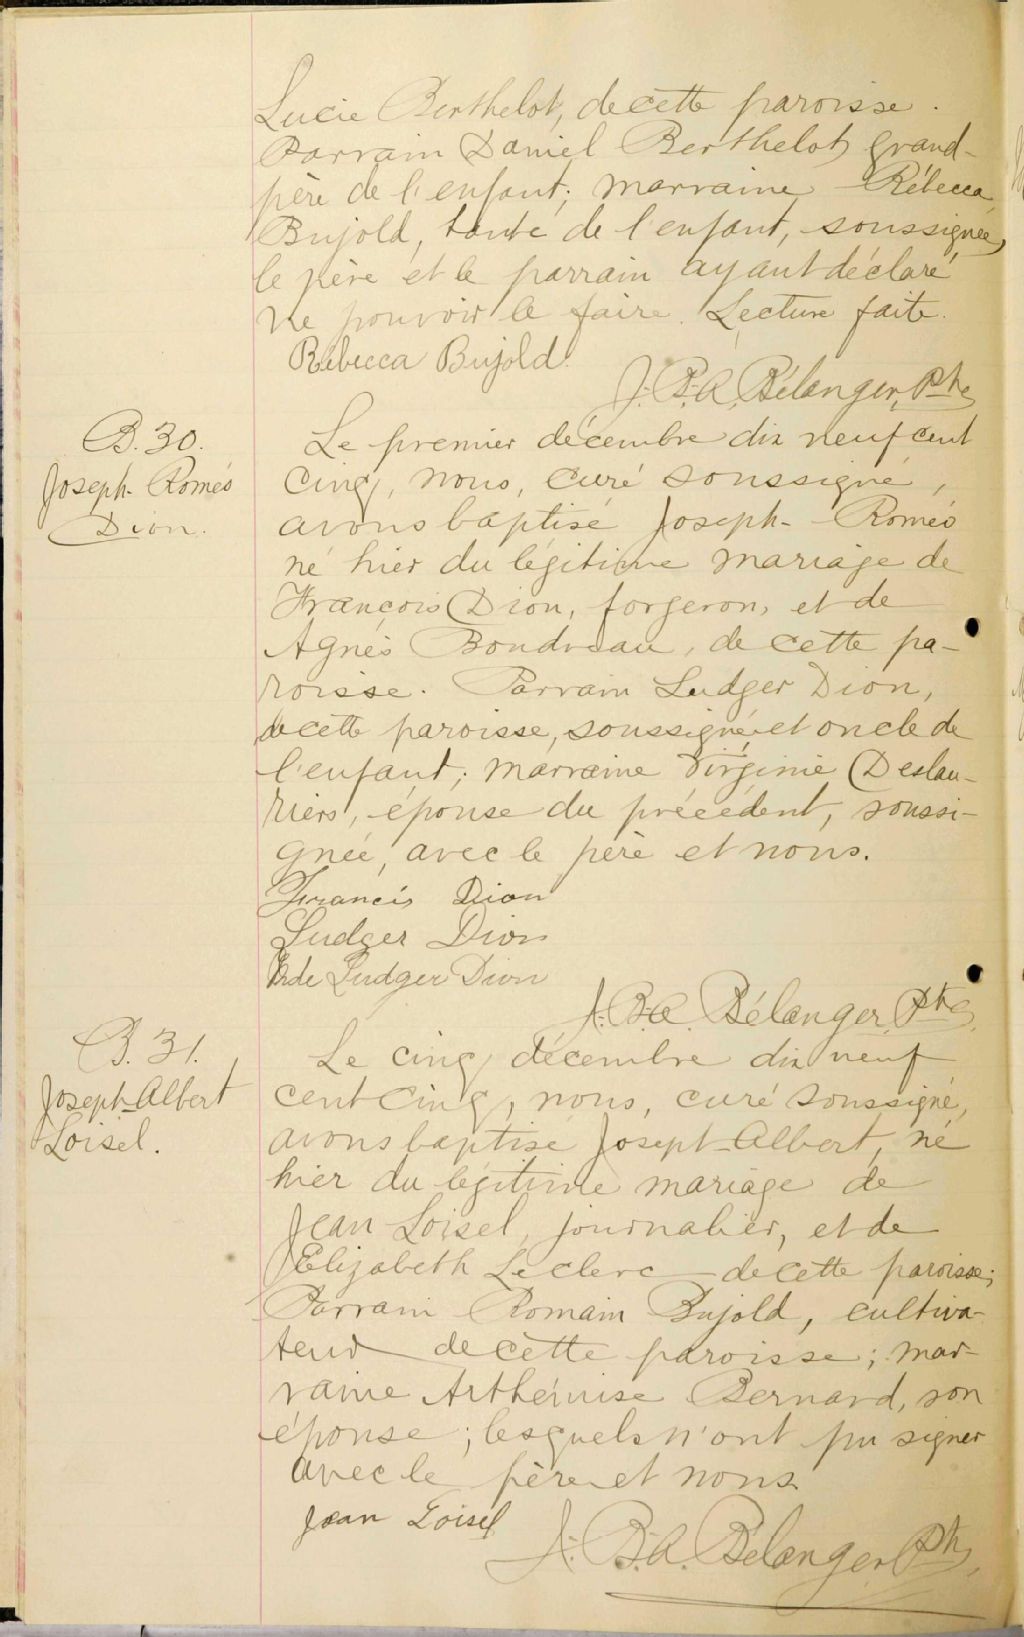 Lucie Berthelot, de cette paroisse.
Parrain Daniel Berthelot, grand-
père de l'enfant; marraine Rébecca
Bujold, tante de l'enfant, soussignée,
le père et le parrain ayant déclaré
ne pouvoir le faire. Lecture faite.
Rebecca Bujold.
J. B. A. Bélanger, Ptre
B. 30.
Joseph-Roméo
Dion.
Le premier décembre dix neuf cent
cinq, nous, curé soussigné,
avons baptisé Joseph-Roméo
né hier du légitime mariage de
François Dion, forgeron, et de
Agnès Boudreau, de cette pa-
roisse. Parrain Ludger Dion,
de cette paroisse, soussigné et oncle de
l'enfant; marraine Virginie Deslau-
riers, épouse du précédent, soussi-
gnée, avec le père et nous.
Francis Dion
Ludger Dion
Mde Ludger Dion
J. B. A. Bélanger, Ptre
B. 31.
Joseph-Albert
Loisel.
Le cinq décembre dix neuf
cent cinq, nous, curé soussigné,
avons baptisé Joseph-Albert, né
hier du légitime mariage de
Jean Loisel, journalier, et de
Elizabeth Leclerc de cette paroisse;
Parrain Romain Bujold, cultiva-
teur de cette paroisse; mar-
raine Arthémise Bernard, son
épouse; lesquels n'ont pu signer
avec le père et nous.
Jean Loisel
J. B. A. Bélanger Ptre